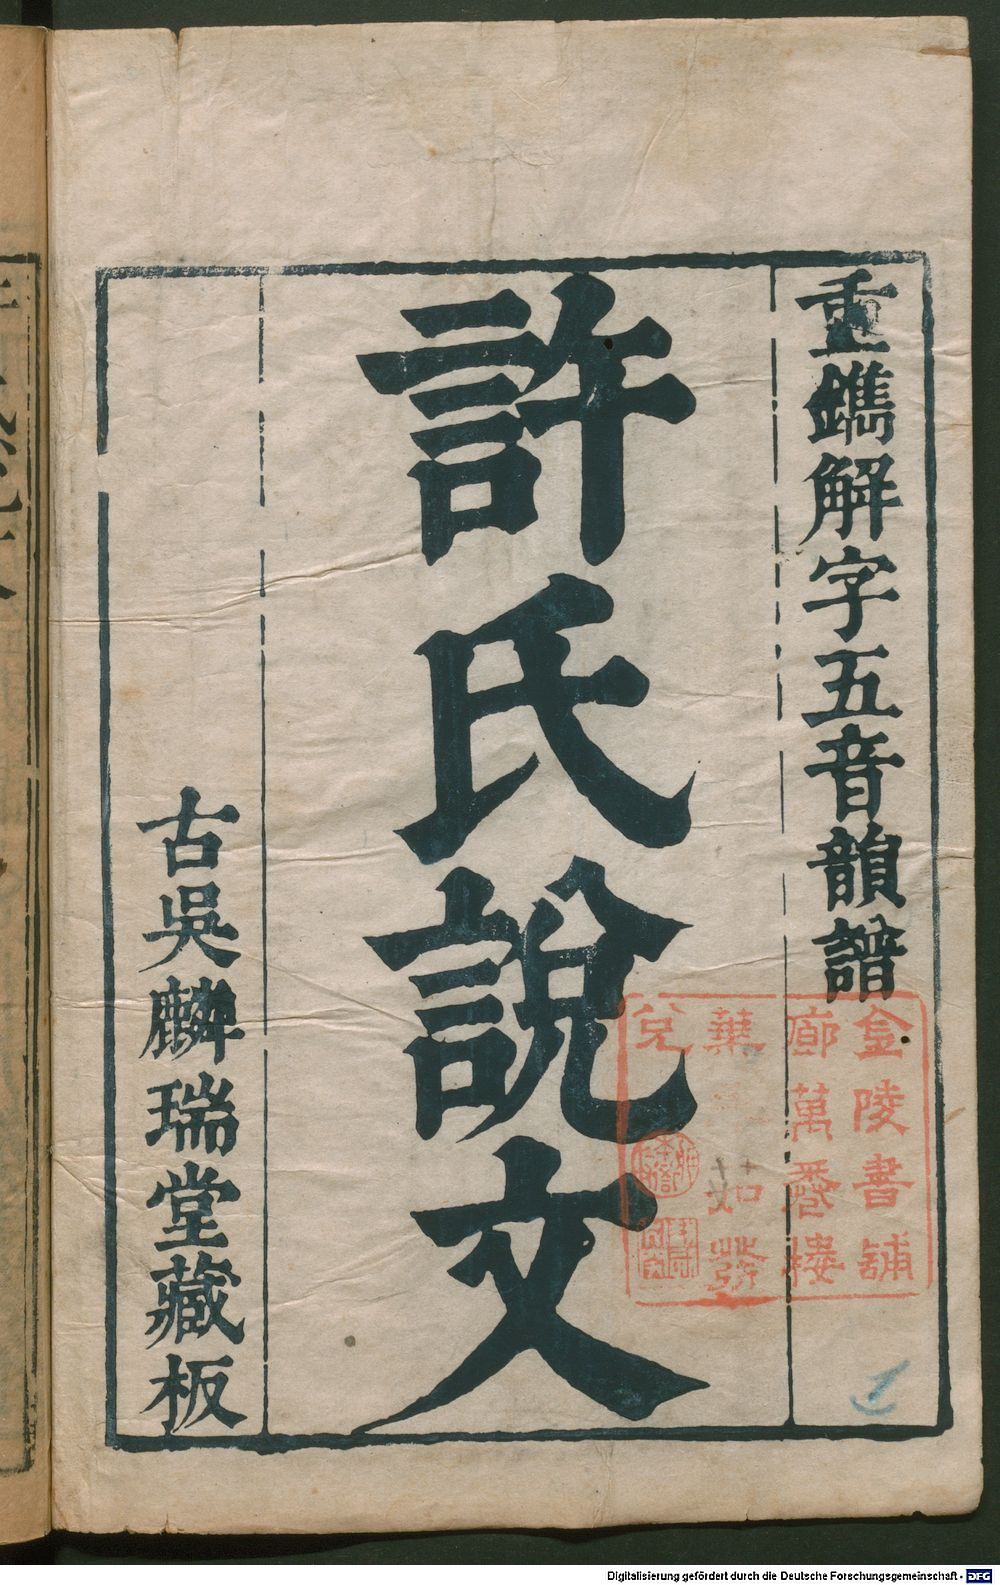 重鐫解字五音韻譜
許氏說文
古吳麟瑞堂藏板
金陵書舖
廊萬卷樓
葉
茹發
兌
Digitalisierung gefördert durch die Deutsche Forschungsgemeinschaft - DFG